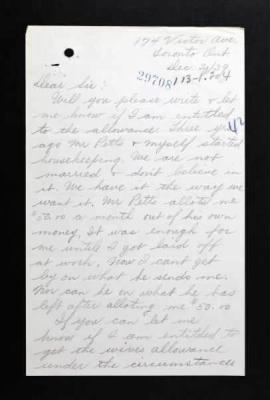 174 Victor Ave.
Toronto Ont
Dec 29/39
29708
Dear Sir:
Will you please write & let
me know if I am entitled
to the allowance. Three yrs
ago Mr Petts & myself started
housekeeping. We are not
married & don't believe in
it. We have it the way we
want it. Mr Petts alloted me
$50.00 a month out of his own
money. It was enough for
me until I got laid off
at work. Now I cant get
by on what he sends me.
Nor can he on what he has
left after alloting me $50.00
If you can let me
know if I am entitled to
get the wives allowance
under the circumstances